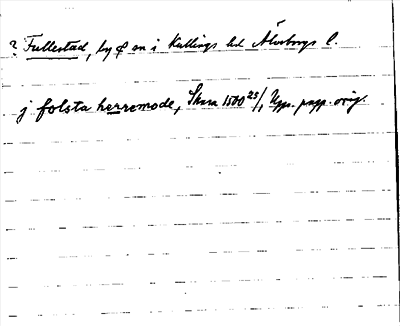 ? Fullestad, by o sn i Kullings hd Älvsborgs l.
j folsta herremode, Skara 1500 23/1 Upps. papp. orig.